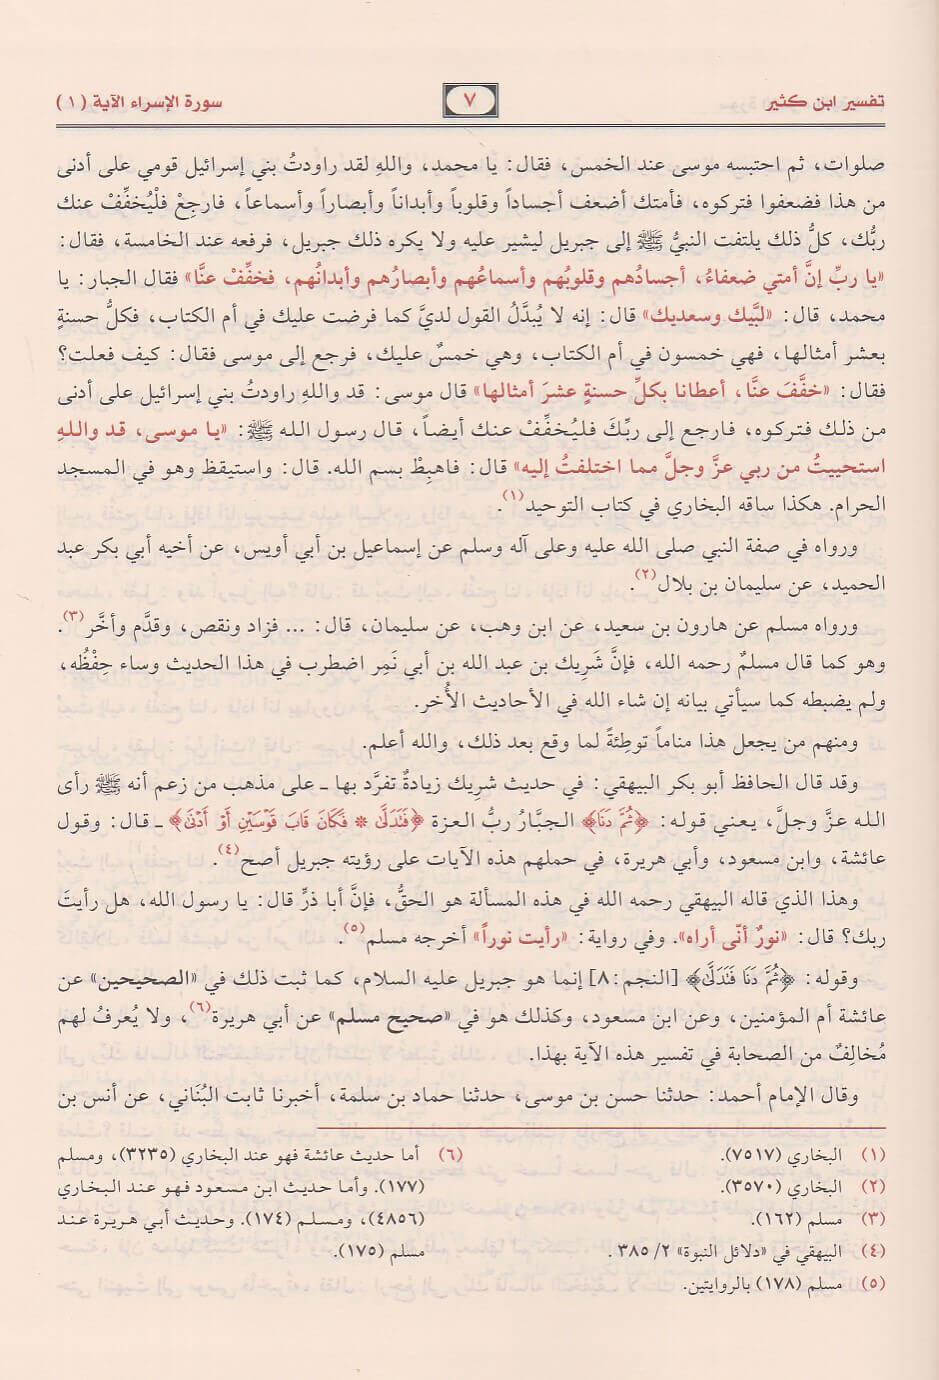 تفسير ابن كثير
٧
سورة الإسراء الآية (١)
صلوات، ثم احتبسه موسى عند الخمس، فقال: يا محمد، واللهِ لقد راودتُ بني إسرائيل قومي على أدنى
من هذا فضعفوا فتركوه، فأمتك أضعف أجساداً وقلوباً وأبداناً وأبصاراً وأسماعاً، فارجِعْ فلْيُخفِّفْ عنك
ربُّك، كلُّ ذلك يلتفت النبيُّ ﷺ إلى جبريل ليشير عليه ولا يكره ذلك جبريل، فرفعه عند الخامسة، فقال:
«يا ربِّ إنَّ أمتي ضعفاءُ، أجسادُهم وقلوبُهم وأسماعُهم وأبصارُهم وأبدانُهم، فخفِّفْ عنَّا» فقال الجبار: يا
محمد، قال: «لبَّيك وسعديك» قال: إنه لا يُبدَّلُ القول لديَّ كما فرضت عليك في أم الكتاب، فكلُّ حسنةٍ
بعشر أمثالها، فهي خمسون في أم الكتاب، وهي خمسٌ عليك، فرجع إلى موسى فقال: كيف فعلت؟
فقال: «خفَّفَ عنَّا، أعطانا بكلِّ حسنةٍ عشرَ أمثالها» قال موسى: قد واللهِ راودتُ بني إسرائيل على أدنى
من ذلك فتركوه، فارجع إلى ربِّك فليُخفِّفْ عنك أيضاً، قال رسول الله ﷺ: «يا موسى، قد واللهِ
استحييتُ من ربي عزَّ وجلَّ مما اختلفتُ إليه» قال: فاهبِطْ بسم الله. قال: واستيقظ وهو في المسجد
الحرام. هكذا ساقه البخاري في كتاب التوحيد(١).
ورواه في صفة النبي صلى الله عليه وعلى آله وسلم عن إسماعيل بن أبي أويس، عن أخيه أبي بكر عبد
الحميد، عن سليمان بن بلال(٢).
ورواه مسلم عن هارون بن سعيد، عن ابن وهب، عن سليمان، قال: ... فزاد ونقص، وقدَّم وأخَّر(٣).
وهو كما قال مسلمٌ رحمه الله، فإنَّ شَرِيك بن عبد الله بن أبي نَمِر اضطرب في هذا الحديث وساء حِفْظُه،
ولم يضبطه كما سيأتي بيانه إن شاء الله في الأحاديث الأُخر.
ومنهم من يجعل هذا مناماً توطِئةً لما وقع بعد ذلك، والله أعلم.
وقد قال الحافظ أبو بكر البيهقي: في حديث شرِيك زيادةٌ تفرَّد بها ـ على مذهب من زعم أنه ﷺ رأى
الله عزَّ وجلَّ، يعني قوله: ﴿ثُمَّ دَنَا﴾ الجبَّارُ ربُّ العزة ﴿فَتَدَلَّىٰ * فَكَانَ قَابَ قَوْسَيْنِ أَوْ أَدْنَىٰ﴾ ـ قال: وقول
عائشة، وابن مسعود، وأبي هريرة، في حملهم هذه الآيات على رؤيته جبريل أصح(٤).
وهذا الذي قاله البيهقي رحمه الله في هذه المسألة هو الحقُّ، فإنَّ أبا ذرٍّ قال: يا رسول الله، هل رأيتَ
ربك؟ قال: «نورٌ أنّى أراه». وفي رواية: «رأيت نوراً» أخرجه مسلم(٥).
وقوله: ﴿ثُمَّ دَنَا فَتَدَلَّىٰ﴾ [النجم: ٨] إنما هو جبريل عليه السلام، كما ثبت ذلك في «الصحيحين» عن
عائشة أم المؤمنين، وعن ابن مسعود، وكذلك هو في «صحيح مسلم» عن أبي هريرة(٦)، ولا يُعرفُ لهم
مُخالِفٌ من الصحابة في تفسير هذه الآية بهذا.
وقال الإمام أحمد: حدثنا حسن بن موسى، حدثنا حماد بن سلمة، أخبرنا ثابت البُنَاني، عن أنس بن
(١) البخاري (٧٥١٧).
(٢) البخاري (٣٥٧٠).
(٣) مسلم (١٦٢).
(٤) البيهقي في «دلائل النبوة» ٢/ ٣٨٥.
(٥) مسلم (١٧٨) بالروايتين.
(٦) أما حديث عائشة فهو عند البخاري (٣٢٣٥)، ومسلم
(١٧٧). وأما حديث ابن مسعود فهو عند البخاري
(٤٨٥٦)، ومسلم (١٧٤). وحديث أبي هريرة عند
مسلم (١٧٥).